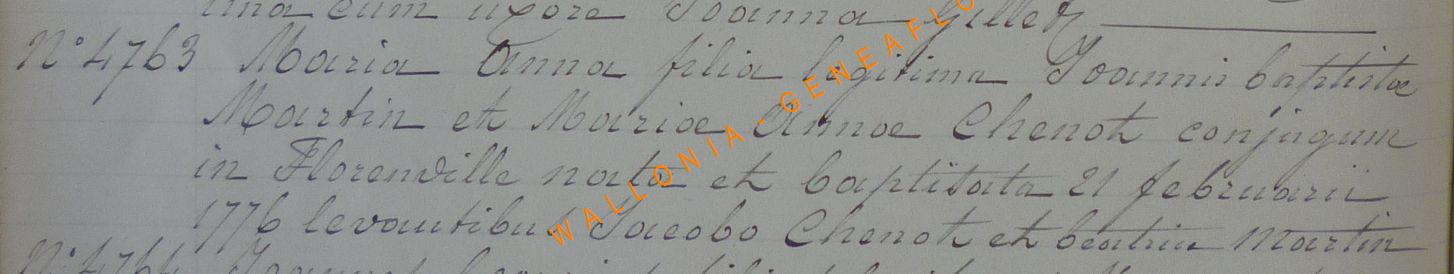 una cum uxore Joanna Gillet
N° 4763 Maria Anna filia legitima Joannis baptistae
Martin et Mariae Annae Chenot conjugum
in Florenville nata et baptisata 21 februarii
1776 levantibus Jacobo Chenot et beatrix Martin
N° 4764
WALLONIA - GENEAFLO